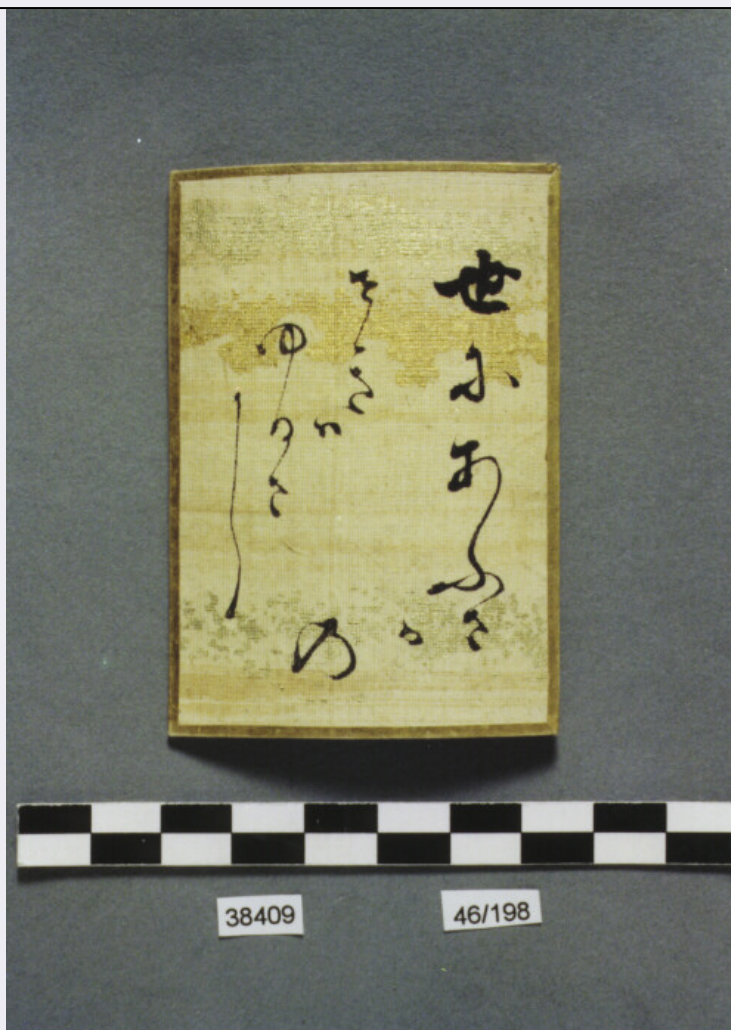 世にあふさ
かの
せきハ
ゆるさ
し
38409
46/198